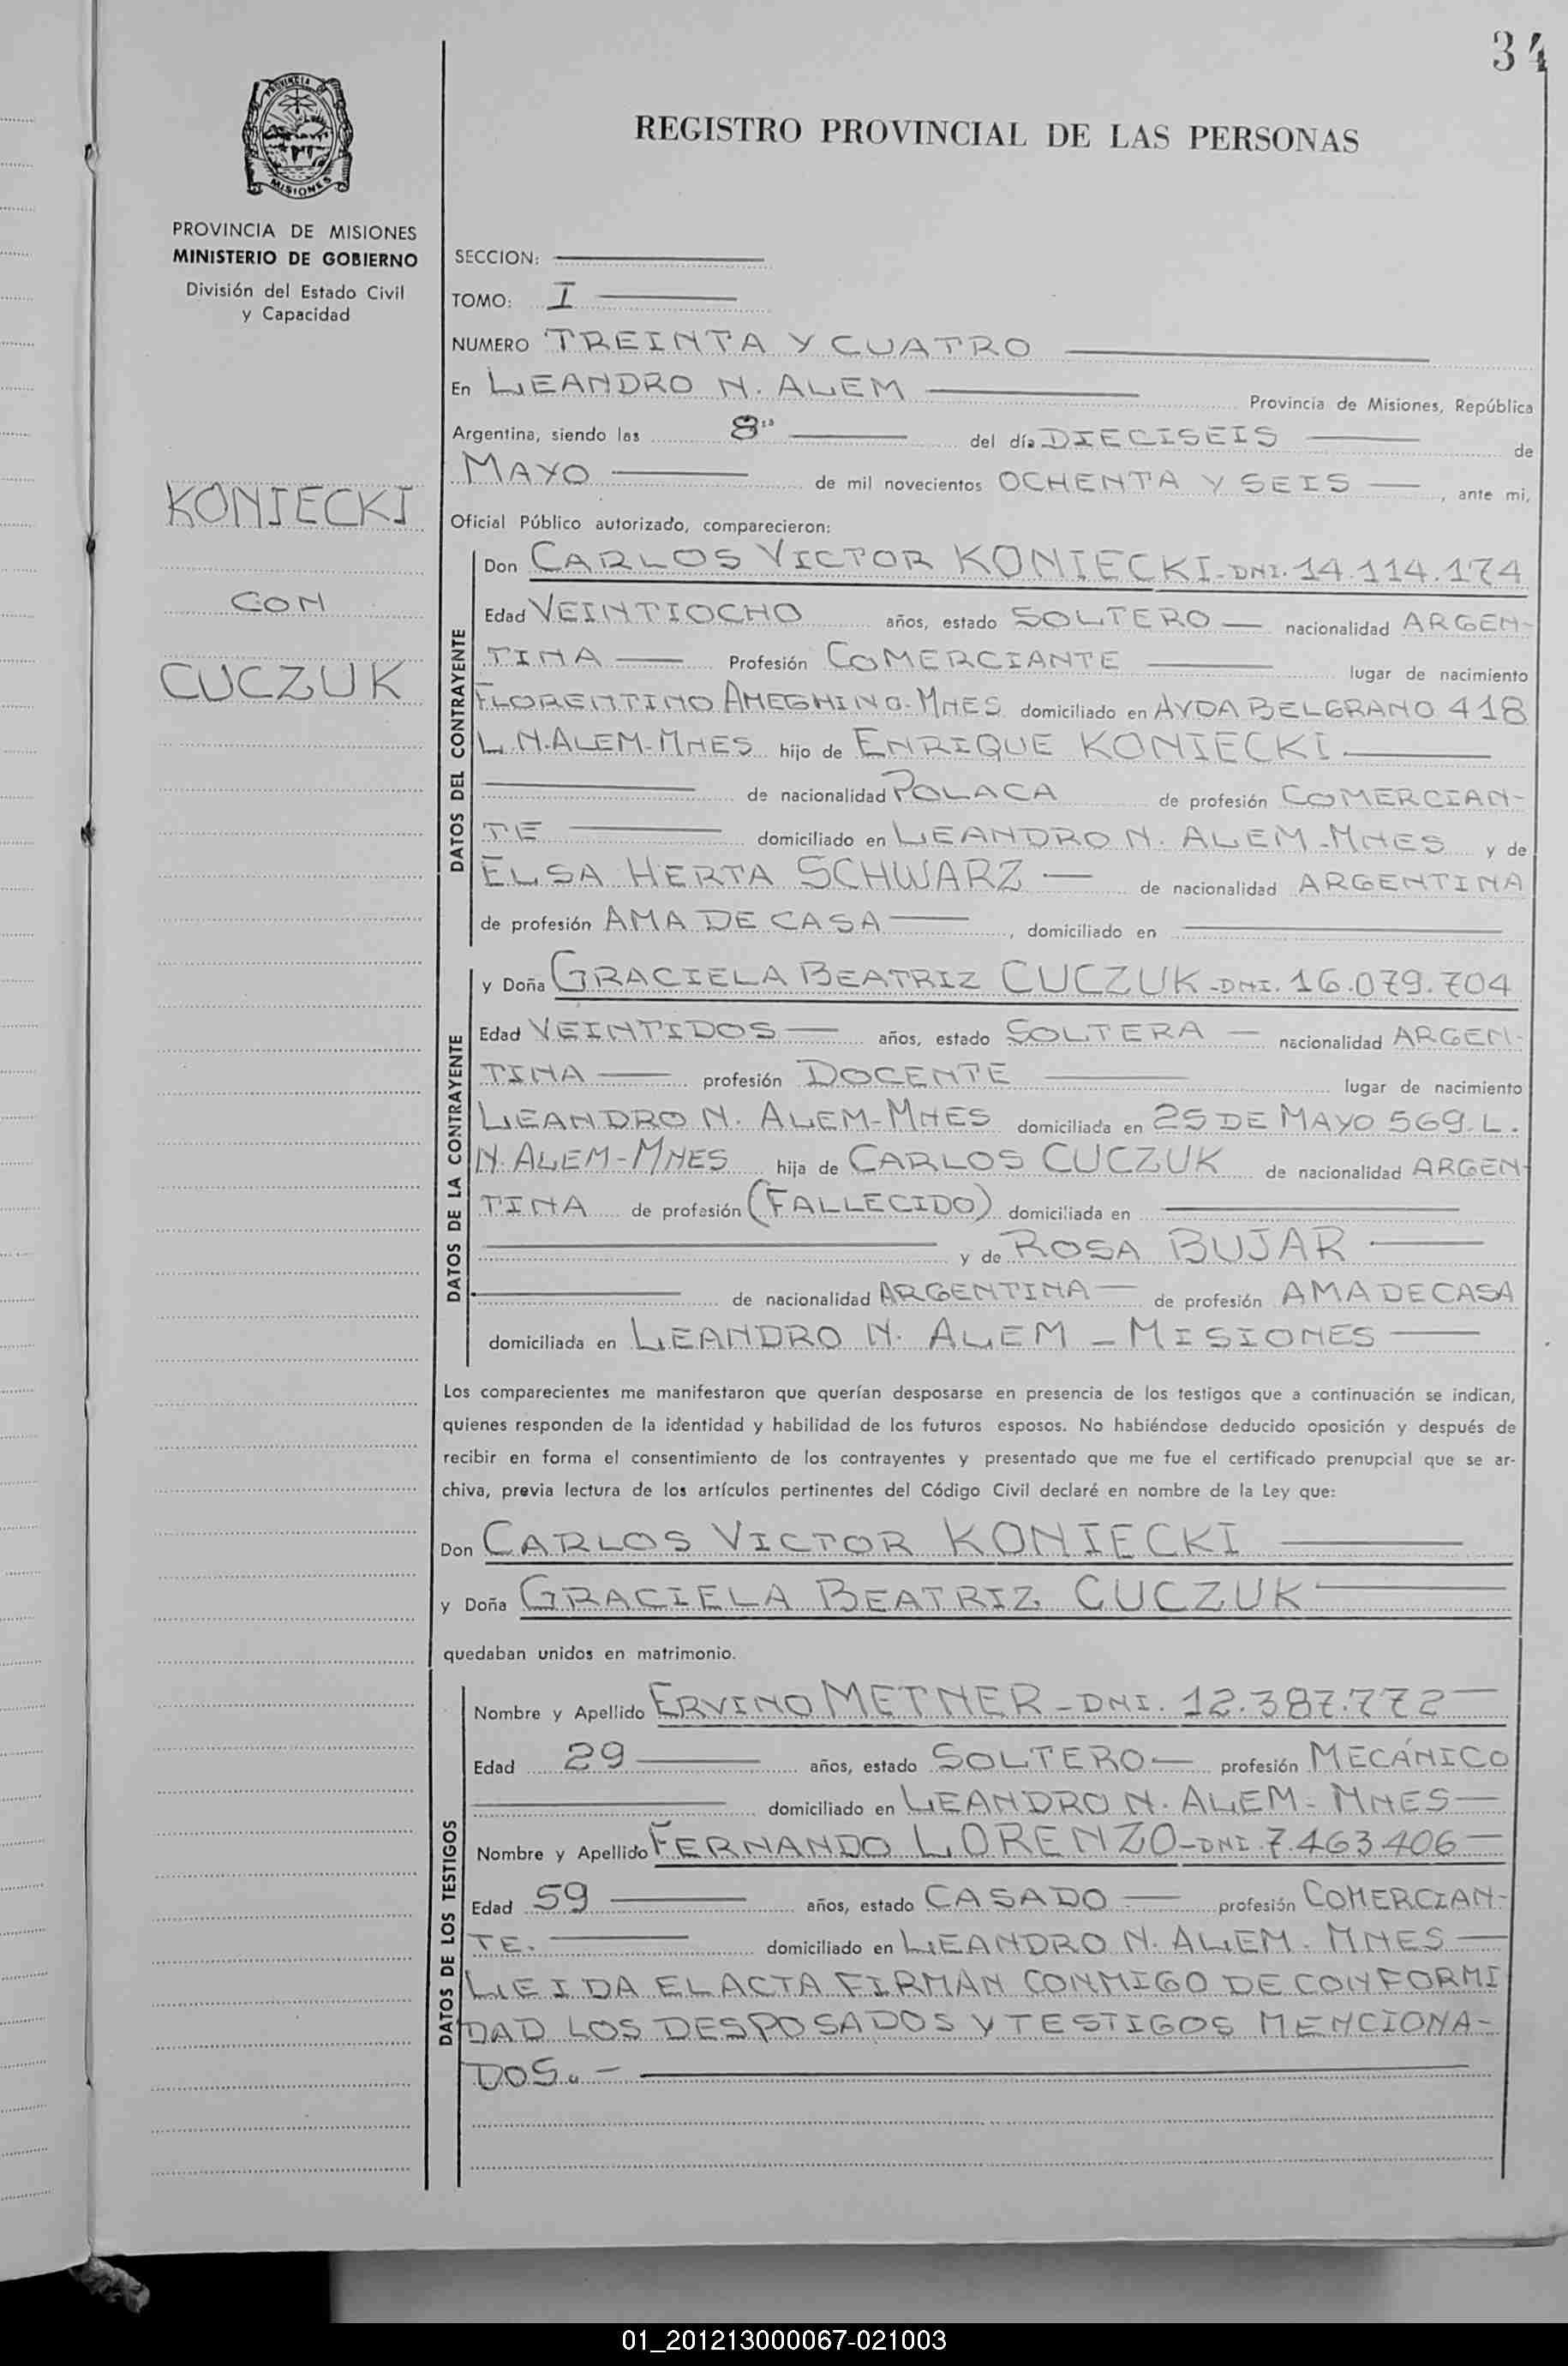 34
PROVINCIA DE
MISIONES
REGISTRO PROVINCIAL DE LAS PERSONAS
PROVINCIA DE MISIONES
MINISTERIO DE GOBIERNO
División del Estado Civil
y Capacidad
KONIECKI
CON
CUCZUK
SECCION:
TOMO: I
NUMERO TREINTA Y CUATRO
En LEANDRO N. ALEM Provincia de Misiones, República
Argentina, siendo las 8 del día DIECISEIS de
MAYO de mil novecientos OCHENTA Y SEIS, ante mi,
Oficial Público autorizado, comparecieron:
DATOS DEL CONTRAYENTE
Don CARLOS VICTOR KONIECKI-DNI. 14.114.174
Edad VEINTIOCHO años, estado SOLTERO nacionalidad ARGEN-
TINA Profesión COMERCIANTE lugar de nacimiento
FLORENTINO AMEGHINO-MNES domiciliado en AVDA BELGRANO 418
L.N.ALEM-MNES hijo de ENRIQUE KONIECKI
de nacionalidad POLACA de profesión COMERCIAN-
TE domiciliado en LEANDRO N. ALEM-MNES y de
ELSA HERTA SCHWARZ de nacionalidad ARGENTINA
de profesión AMA DE CASA, domiciliado en
DATOS DE LA CONTRAYENTE
y Doña GRACIELA BEATRIZ CUCZUK-DNI. 16.079.704
Edad VEINTIDOS años, estado SOLTERA nacionalidad ARGEN-
TINA profesión DOCENTE lugar de nacimiento
LEANDRO N. ALEM-MNES domiciliada en 25 DE MAYO 569. L.
N. ALEM-MNES hija de CARLOS CUCZUK de nacionalidad ARGEN-
TINA de profesión (FALLECIDO) domiciliada en
y de ROSA BUJAR
de nacionalidad ARGENTINA de profesión AMA DE CASA
domiciliada en LEANDRO N. ALEM - MISIONES
Los comparecientes me manifestaron que querían desposarse en presencia de los testigos que a continuación se indican,
quienes responden de la identidad y habilidad de los futuros esposos. No habiéndose deducido oposición y después de
recibir en forma el consentimiento de los contrayentes y presentado que me fue el certificado prenupcial que se ar-
chiva, previa lectura de los artículos pertinentes del Código Civil declaré en nombre de la Ley que:
Don CARLOS VICTOR KONIECKI
y Doña GRACIELA BEATRIZ CUCZUK
quedaban unidos en matrimonio.
DATOS DE LOS TESTIGOS
Nombre y Apellido ERVINO METNER - DNI. 12.387.772
Edad 29 años, estado SOLTERO profesión MECÁNICO
domiciliado en LEANDRO N. ALEM - MNES
Nombre y Apellido FERNANDO LORENZO-DNI. 7.463.406
Edad 59 años, estado CASADO profesión COMERCIAN-
TE. domiciliado en LEANDRO N. ALEM. MNES
LEIDA EL ACTA FIRMAN CONMIGO DE CONFORMI
DAD LOS DESPOSADOS Y TESTIGOS MENCIONA-
DOS.-
01_201213000067-021003